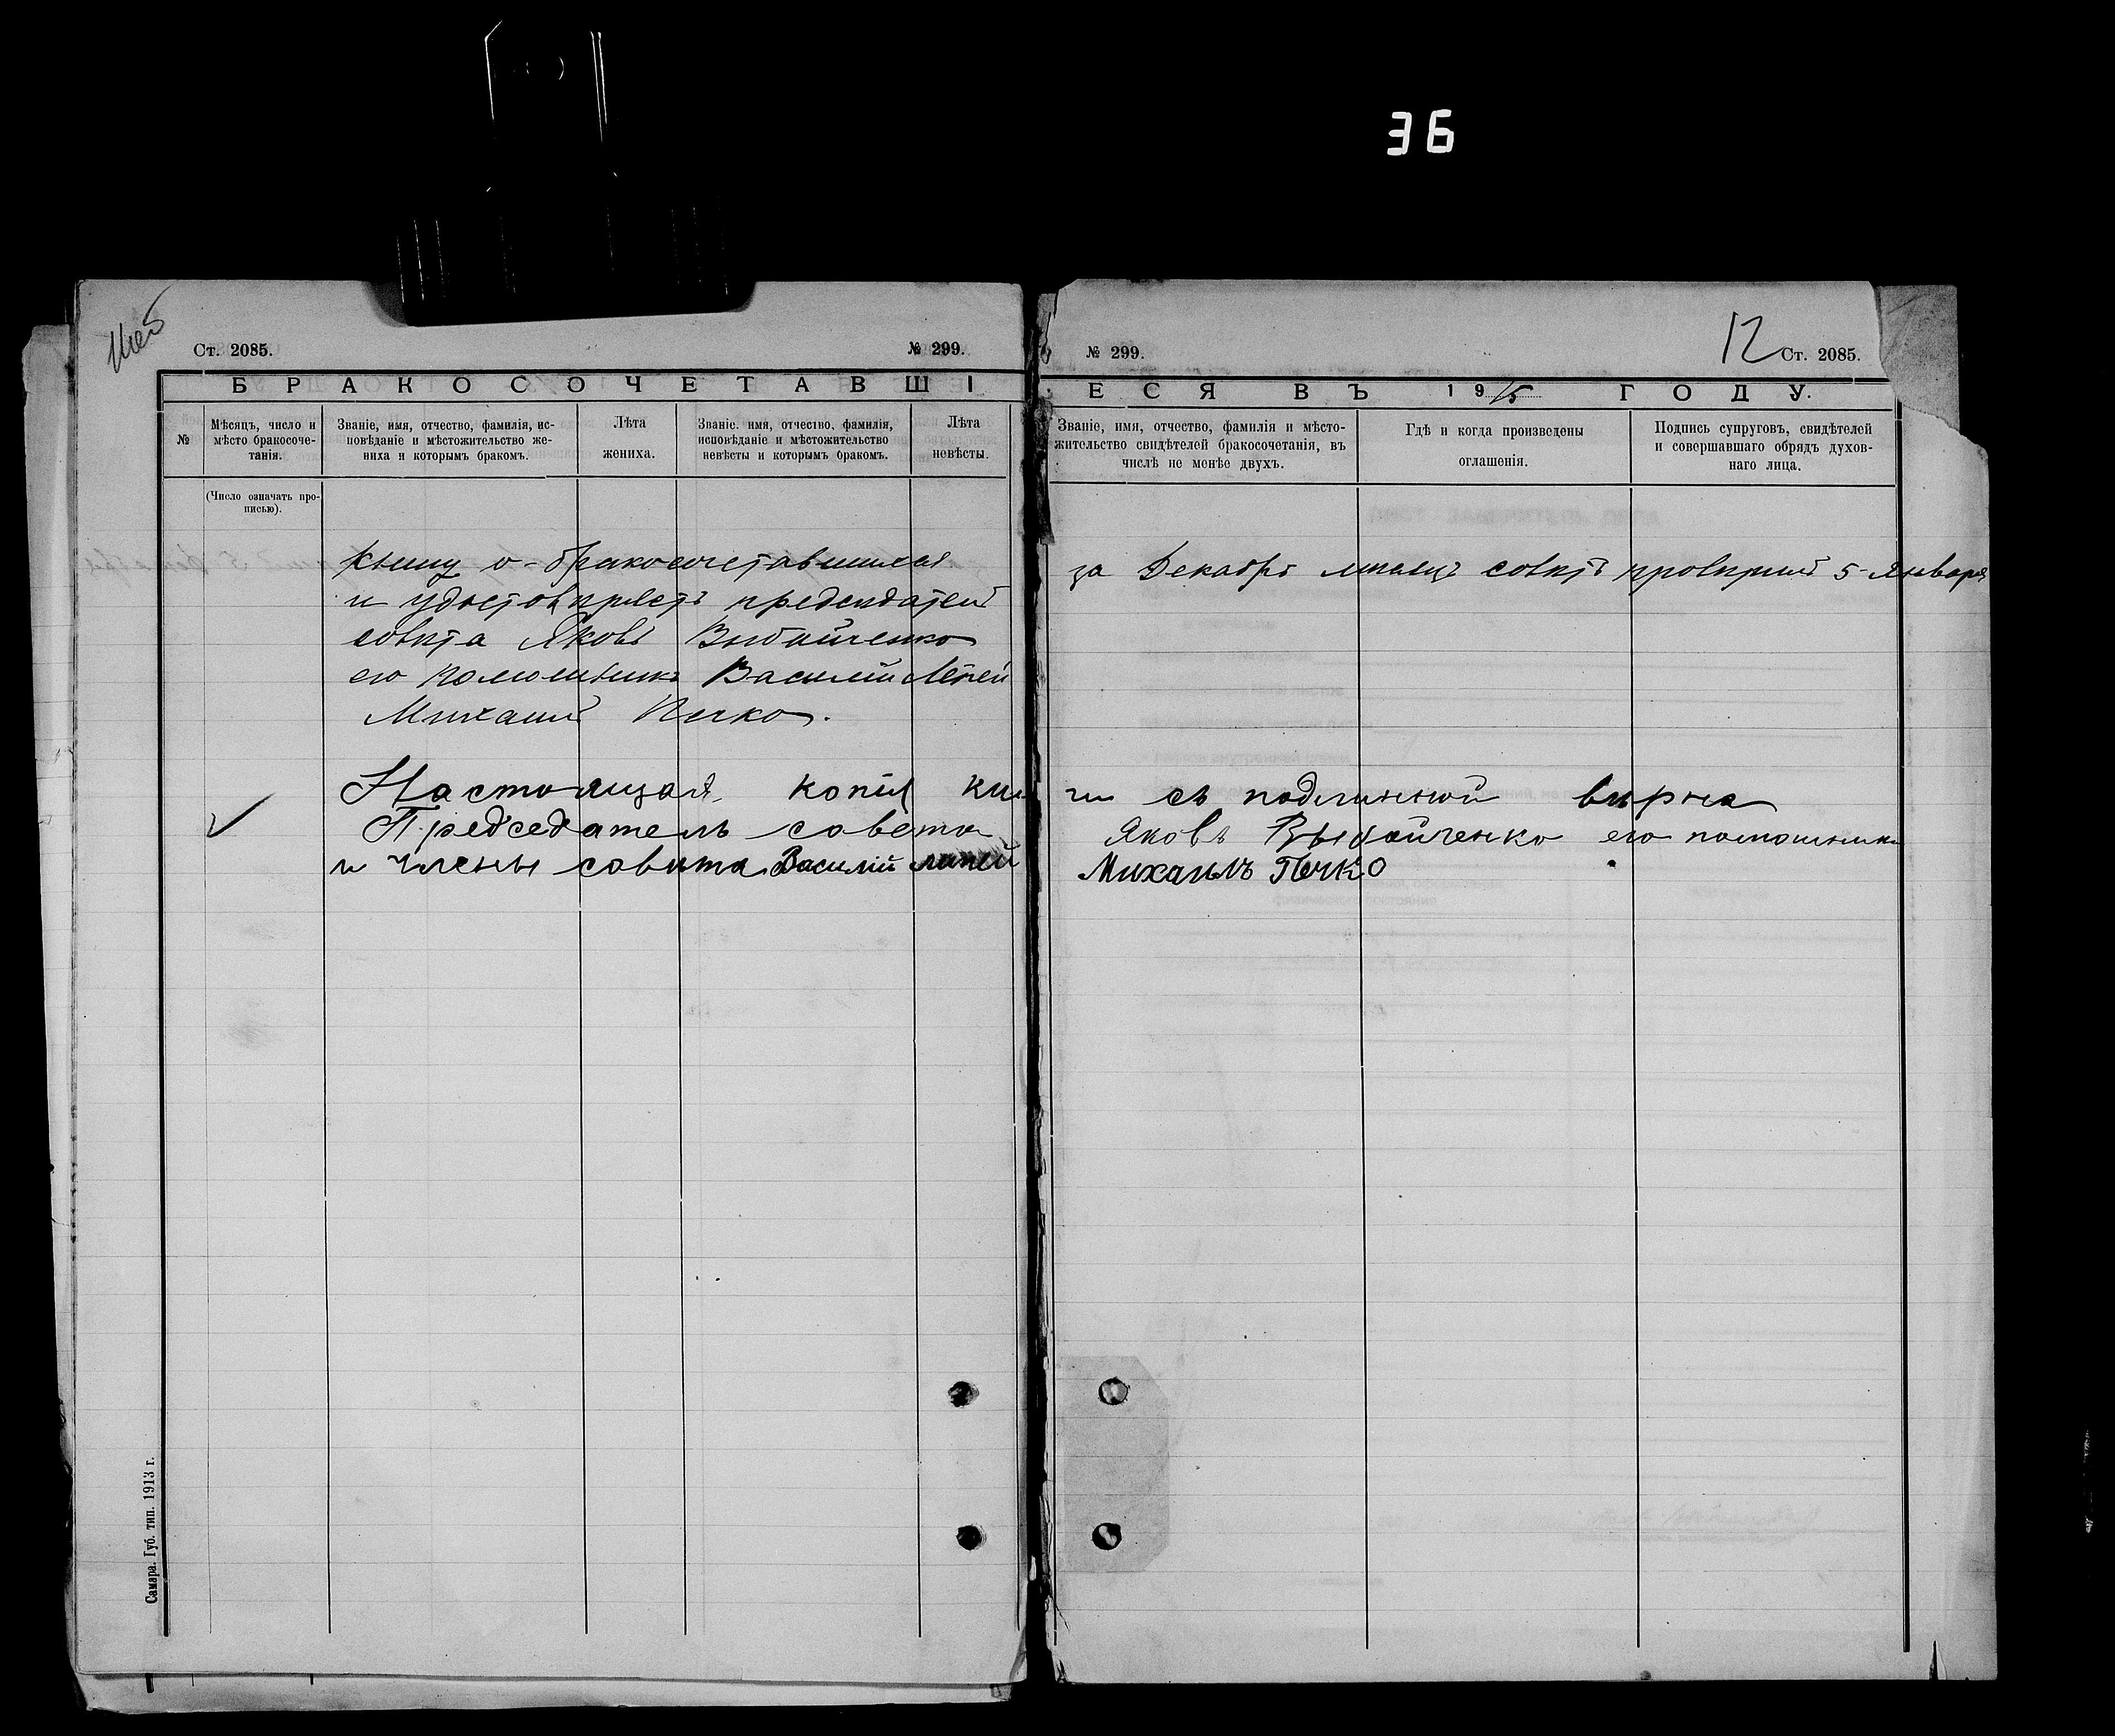 36
Ст. 2085.
№ 299.
№ 299.
12
Ст. 2085.
БРАКОСОЧЕТАВШІ
ЕСЯ ВЪ 1915 ГОДУ.
№
Мѣсяцъ, число и
мѣсто бракосоче-
танія.
Званіе, имя, отчество, фамилія, ис-
повѣданіе и мѣстожительство же-
ниха и которымъ бракомъ.
Лѣта
жениха.
Званіе. имя, отчество, фамилія,
исповѣданіе и мѣстожительство
невѣсты и которымъ бракомъ.
Лѣта
невѣсты.
Званіе, имя, отчество, фамилія и мѣсто-
жительство свидѣтелей бракосочетанія, въ
числѣ не менѣе двухъ.
Гдѣ и когда произведены
оглашенія.
Подпись супруговъ, свидѣтелей
и совершавшаго обрядъ духов-
наго лица.
(Число означать про-
писью).
книгу о-бракосочетавшихся за Декабрь мѣсяцъ совѣтъ провѣрилъ 5 Января
и удостовѣряетъ председатель
совѣта Яковъ Выбойченко
его помошникъ Василій Лепей
Михаилъ Печко.
Настоящая копія книги съ подлинной вѣрна
Председатель совета Яковъ Выбойченко его помошник
и члены совѣта Василій лепей Михаилъ Печко
Самара. Губ. тип. 1913 г.